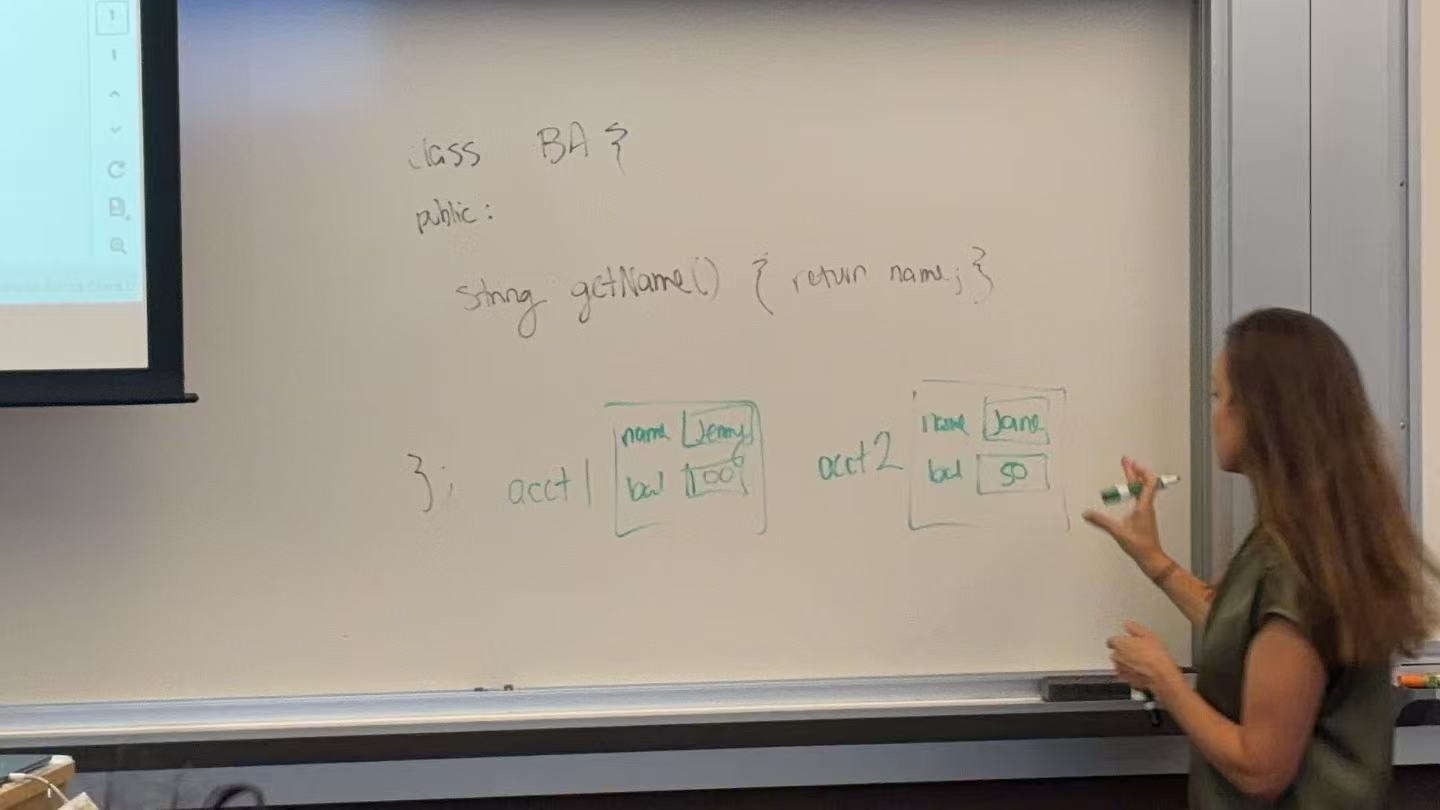 class BA {
public:
string getName() { return name; }
}; acct1 name Jenny bal 100 acct2 name Jane bal 50